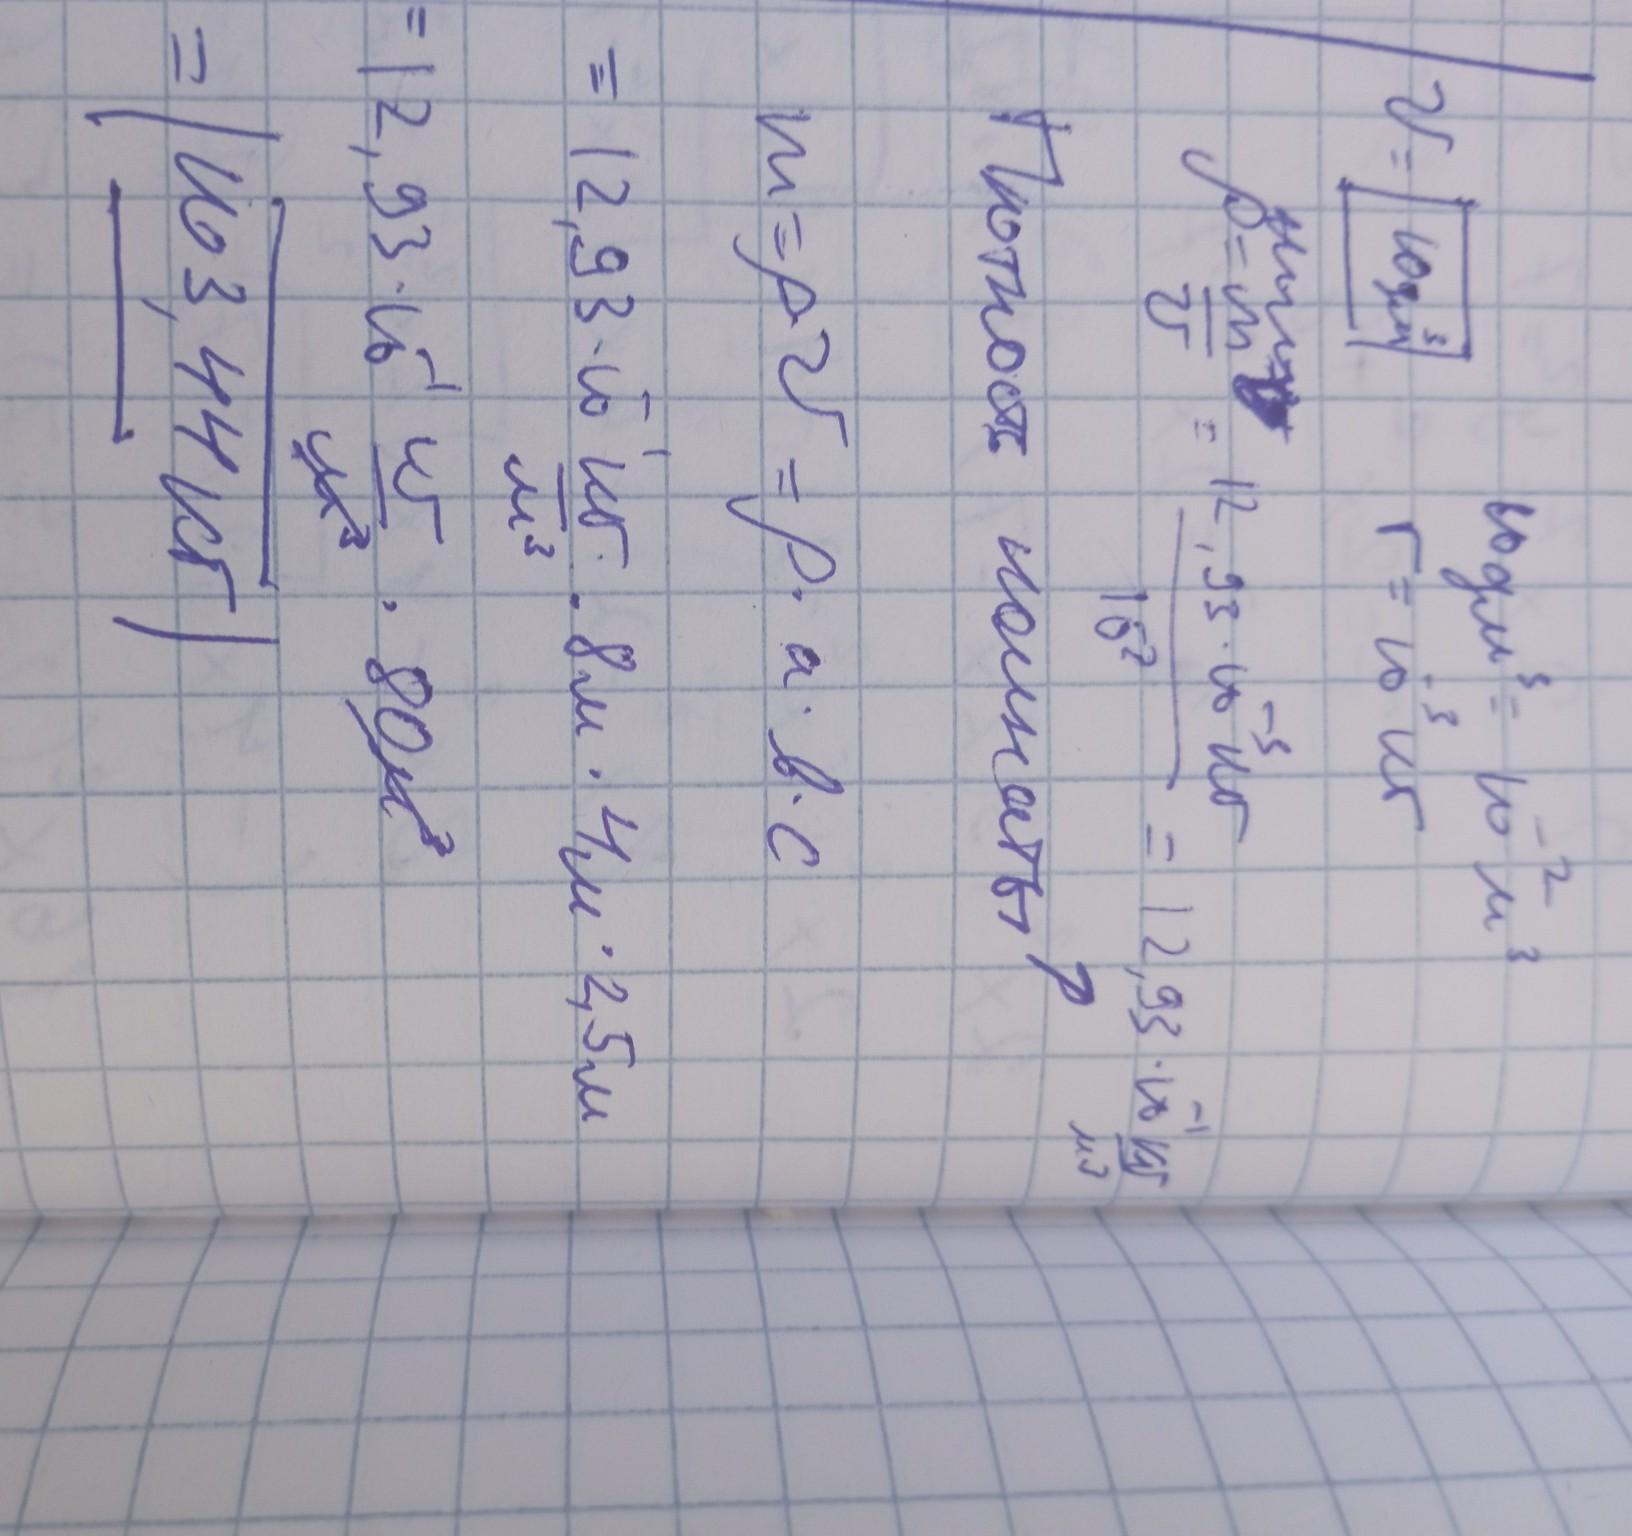 V = 10 дм³ 10 дм³ = 10⁻² м³
г = 10⁻³ кг
ρ = m/V = 12,93·10⁻³ кг/10⁻² = 12,93·10⁻¹ кг/м³
Плотность комнаты ρ
m = ρV = ρ·a·b·c
= 12,93·10⁻¹ кг/м³ · 8м · 4м · 2,5м
= 12,93·10⁻¹ кг/м³ · 80м³
= 103,44 кг